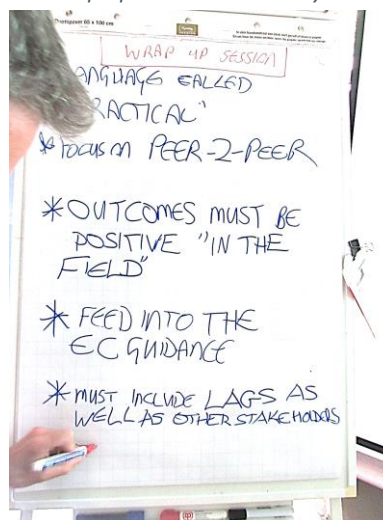 WRAP UP SESSION
LANGUAGE CALLED
PRACTICAL"
* FOCUS ON PEER-2-PEER
* OUTCOMES MUST BE
POSITIVE "IN THE
FIELD"
* FEED INTO THE
EC GUIDANCE
* MUST INCLUDE LAGS AS
WELL AS OTHER STAKEHOLDERS